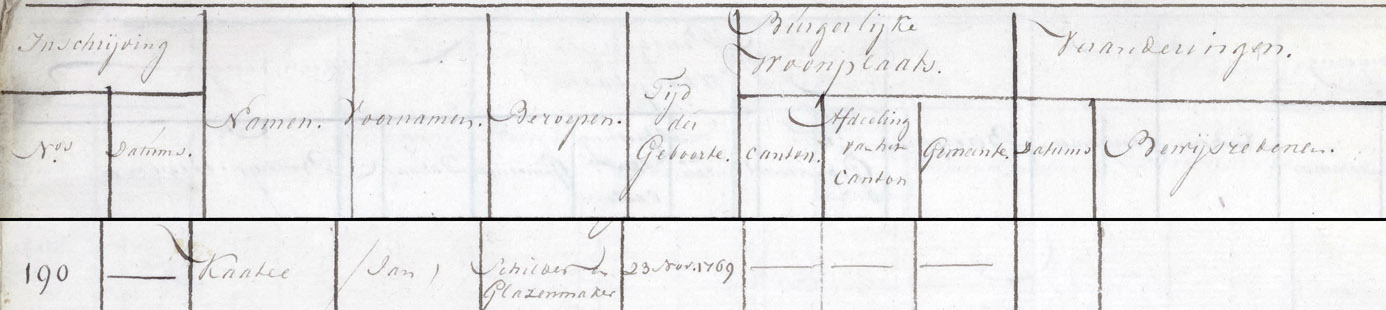 Inschrijving
Burgerlijke
Woonplaats.
Veranderingen.
Nos
Datums.
Namen.
Voornamen.
Beroepen.
Tijd
der
Geboorte.
Canton.
Afdeeling
van het
Canton
Gemeente.
Datums
Bewijsredenen.
190 — Kaatee (Jan) Schilder en 23 Nov. 1769 — — —
Glazenmaker